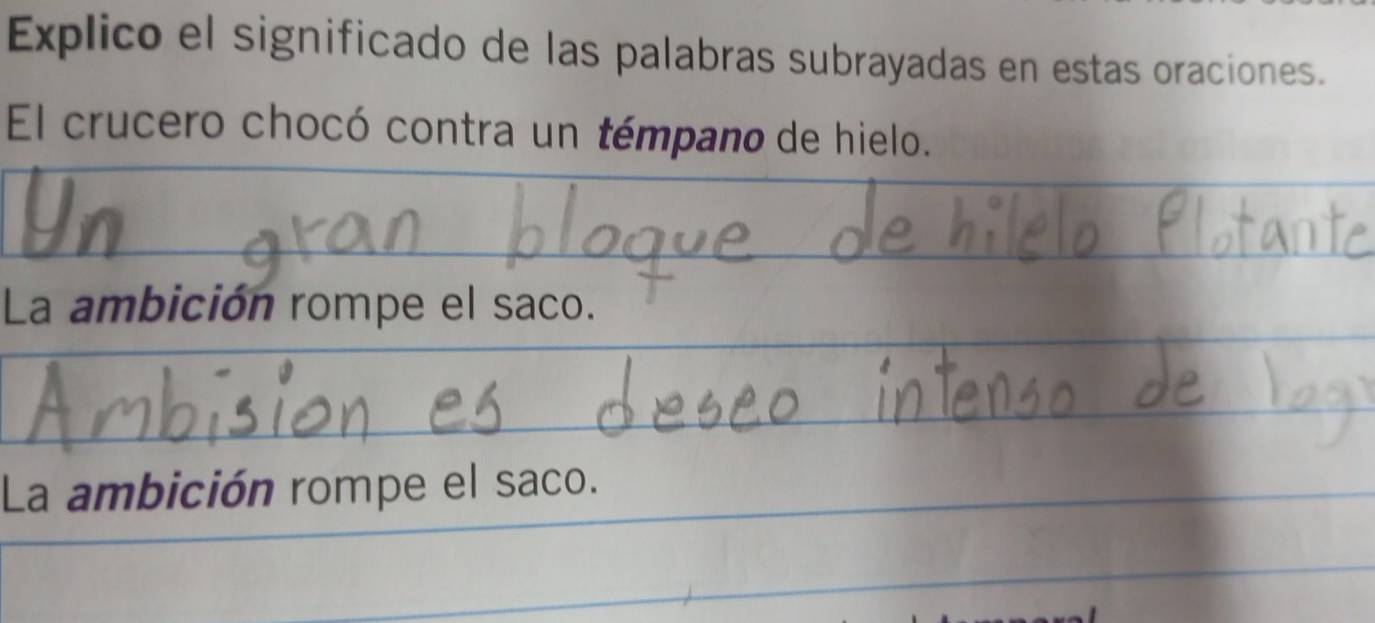 Explico el significado de las palabras subrayadas en estas oraciones.
El crucero chocó contra un témpano de hielo.
Un gran bloque de hilelo flotante
La ambición rompe el saco.
Ambision es deseo intenso de logr
La ambición rompe el saco.